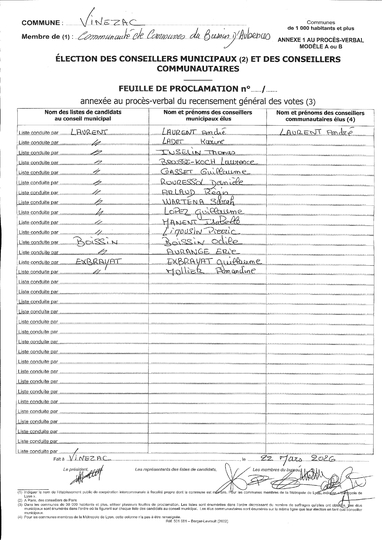 COMMUNE : VINEZAC
Communes
de 1 000 habitants et plus
Membre de (1) : Communauté de Communes du Bassin d'Aubenas
ANNEXE 1 AU PROCÈS-VERBAL
MODÈLE A ou B
ÉLECTION DES CONSEILLERS MUNICIPAUX (2) ET DES CONSEILLERS
COMMUNAUTAIRES
FEUILLE DE PROCLAMATION n° ....../......
annexée au procès-verbal du recensement général des votes (3)
Nom des listes de candidats au conseil municipal
Nom et prénoms des conseillers municipaux élus
Nom et prénoms des conseillers communautaires élus (4)
Liste conduite par LAURENT LAURENT André LAURENT André
Liste conduite par // LADET Karine
Liste conduite par // Thomas
Liste conduite par // Laurence
Liste conduite par // GASSET Guillaume
Liste conduite par // Danièle
Liste conduite par // ARLAUD Régis
Liste conduite par // WARTENA Sarah
Liste conduite par // LOPEZ Guillaume
Liste conduite par // MANENT Isabelle
Liste conduite par // LIMOUSIN Pierric
Liste conduite par BOISSIN BOISSIN Odile
Liste conduite par // AURANGE Eric
Liste conduite par EXBRAYAT EXBRAYAT Guillaume
Liste conduite par // Amandine
Liste conduite par
Liste conduite par
Liste conduite par
Liste conduite par
Liste conduite par
Liste conduite par
Liste conduite par
Liste conduite par
Liste conduite par
Liste conduite par
Liste conduite par
Liste conduite par
Liste conduite par
Liste conduite par
Fait à VINEZAC, le 22 Mars 2026
Le président, Les représentants des listes de candidats, Les membres du bureau,